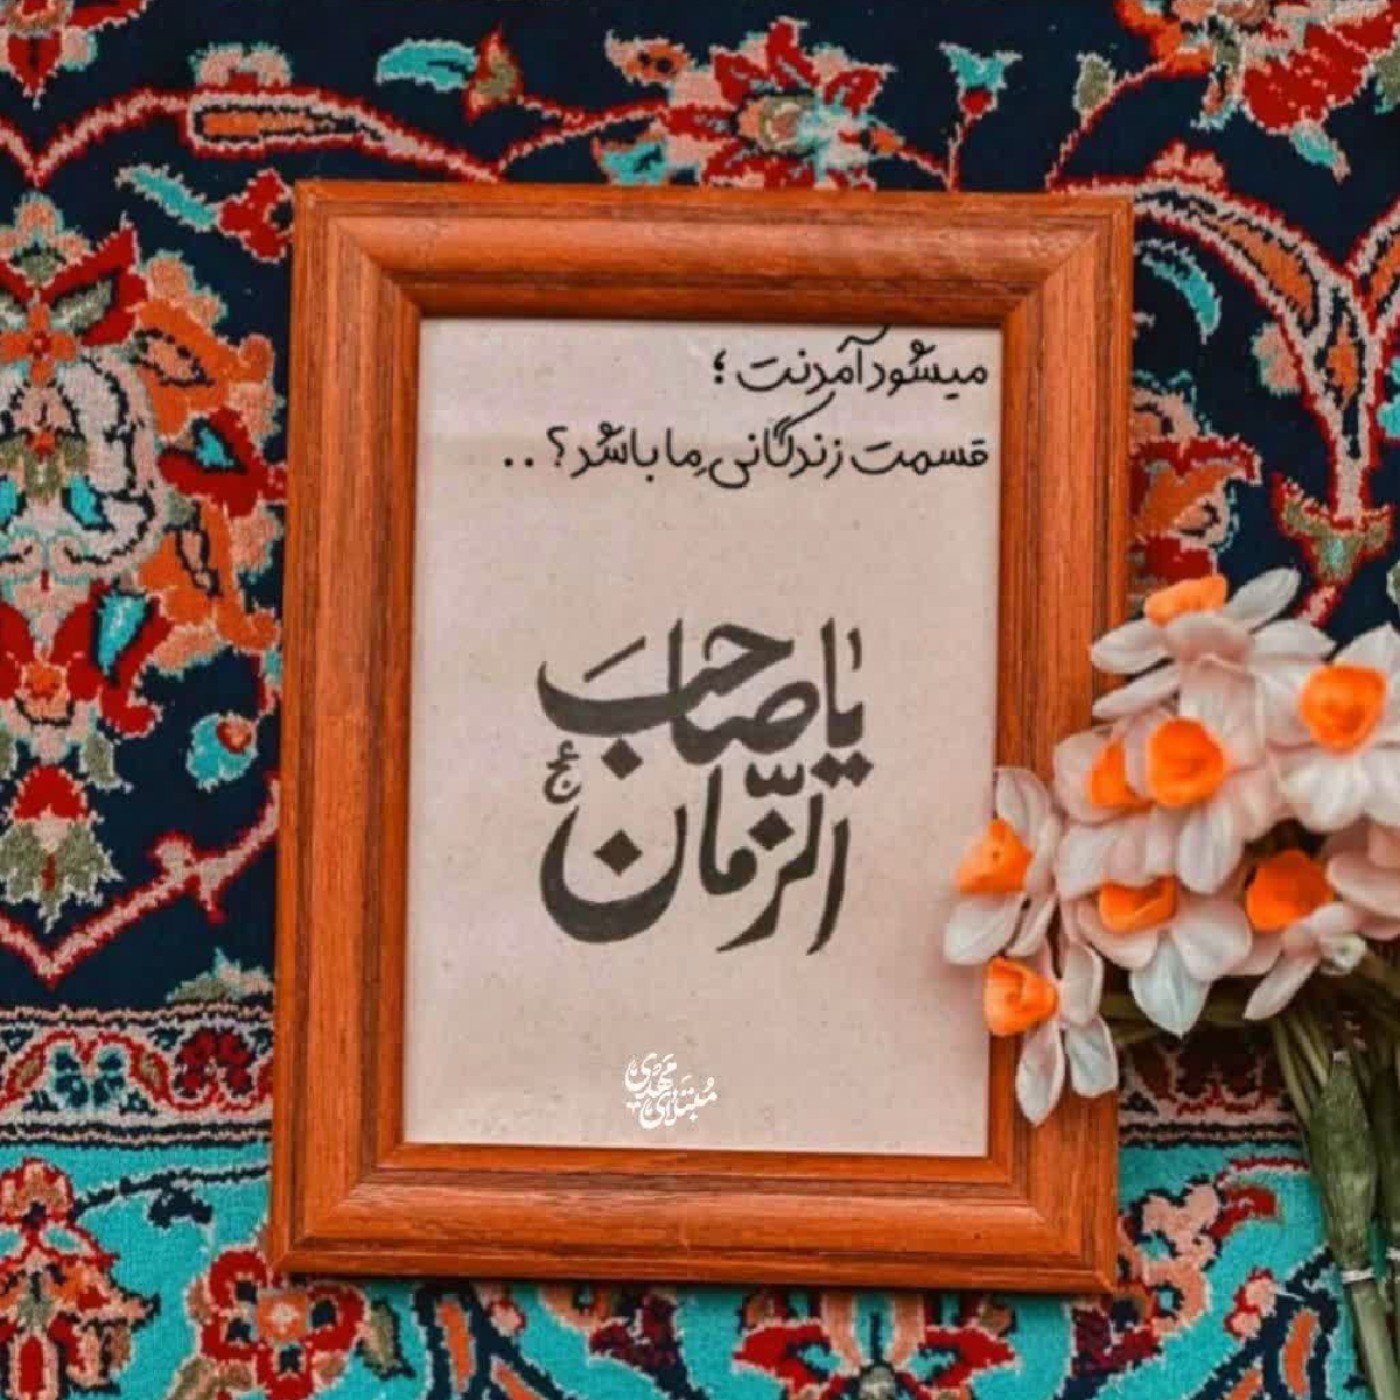 میشود آمدنت ؛
قسمت زندگانیِ ما باشد ؟ ..
یا صاحب
الزّمان عج
مبتلای مهدی